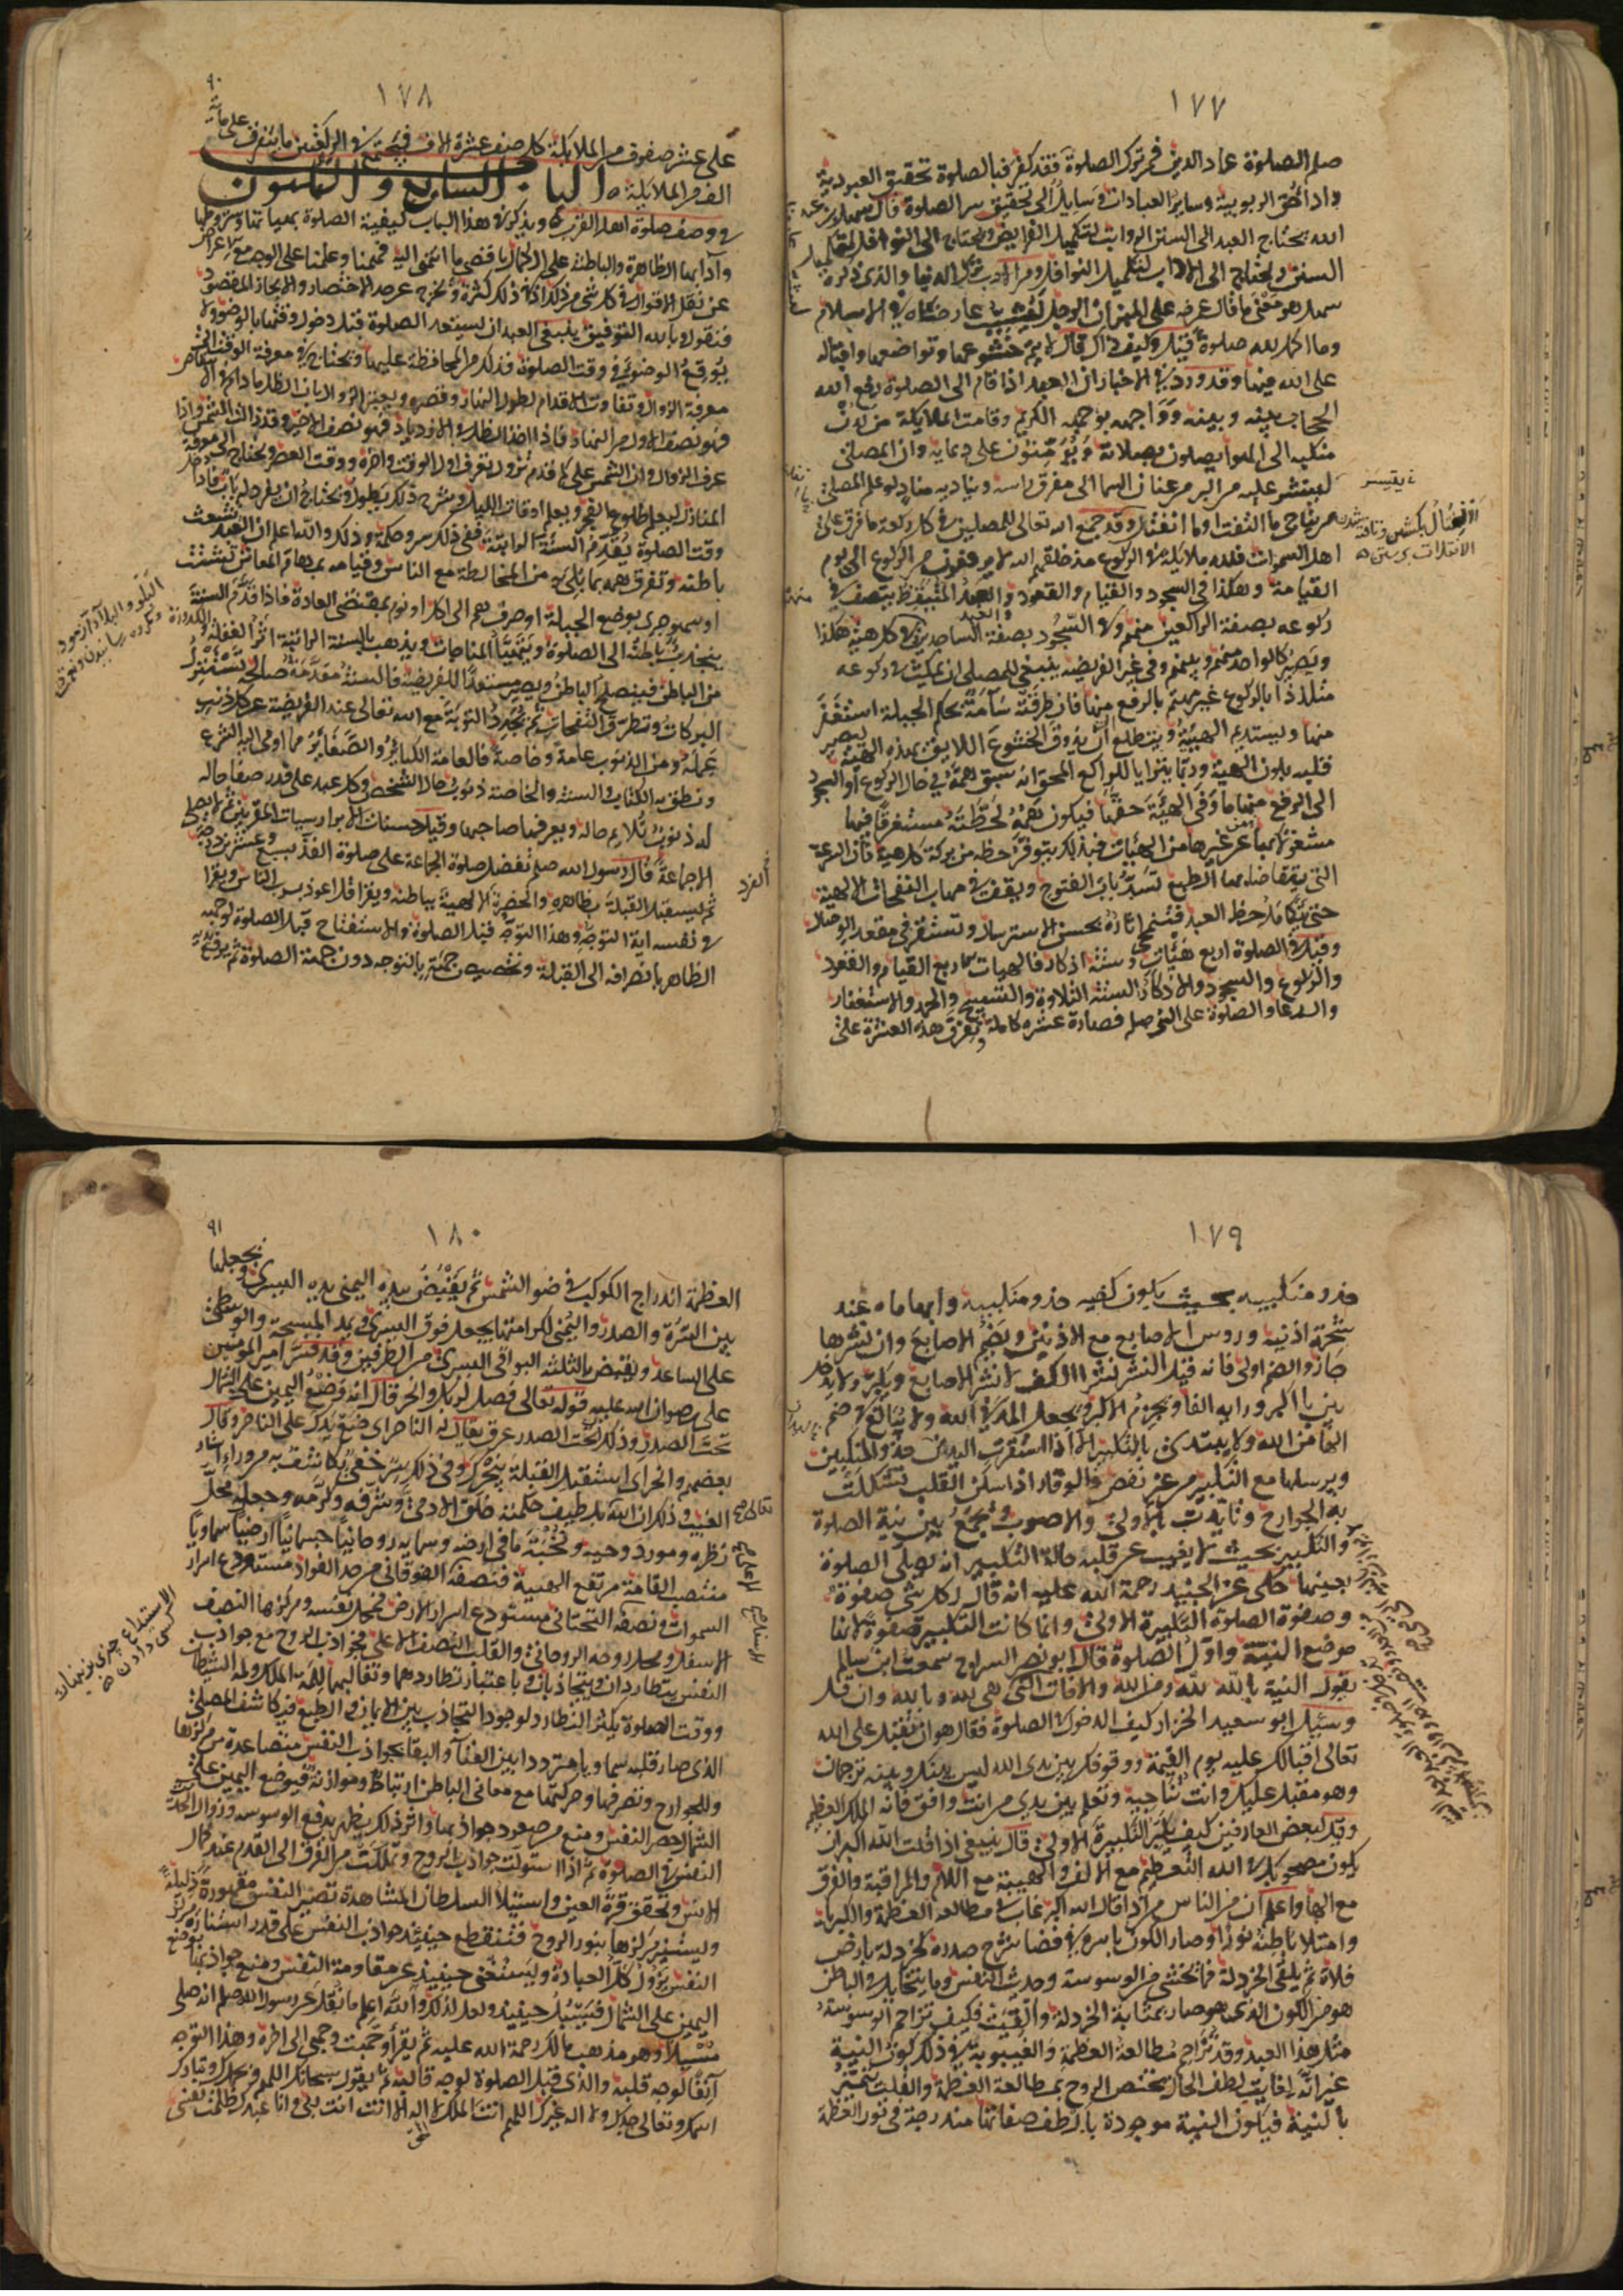 ١٧٧
صلم الصلوة عماد الدين فمن ترك الصلوة فقد كفر فبالصلوة تحقيق العبودية
واداء حق الربوبية وساير العبادات وسايل الى تحقيق سر الصلوة قال سهل بن عبد
الله يحتاج العبد الى السنن الرواتب لتكميل الفرايض ويحتاج الى النوافل لتكميل
السنن ويحتاج الى الاداب لتكميل النوافل ومن الادب ترك الدنيا والذى ذكره
سهل هو معنى ما قال عمر على المنبر ان الرجل ليشيب عارضاه فى الاسلام
وما اكمل لله صلوة قيل وكيف ذاك قال لا يتم خشوعها وتواضعها واقباله
على الله فيها وقد ورد فى الاخبار ان العبد اذا قام الى الصلوة رفع الله
الحجاب بينه وبينه وواجهه بوجهه الكريم وقامت الملايكة من لدن
منكبيه الى الهوا يصلون بصلاته ويؤمنون على دعايه وان المصلى
لينتثر عليه من البر من عنان السما الى مفرق راسه ويناديه مناد لو علم المصلى
من يناجى ما التفت او ما انفتل وقد جمع الله تعالى للمصلين فى كل ركعة ما فرق على
اهل السموات فلله ملايكة فى الركوع منذ خلقهم الله لا يرفعون من الركوع الى يوم
القيامة وهكذا فى السجود والقيام والقعود والعبد المتيقظ يتصف فى
ركوعه بصفة الراكعين منهم وفى السجود بصفة الساجدين وفى كل هيئة هكذا
ويصير كالواحد منهم وبينهم وفى غير الفريضه ينبغى للمصلى ان يمكث فى ركوعه
متلذذا بالركوع غير مهتم بالرفع منها فان طرقته سآمة بحكم الجبلة استغفر
منها ويستديم الهيئة ويتطلع ان يذوق الخشوع اللايق بهذه الهيئة ليصير
قلبه بلون الهيئة وربما يترايا للراكع المحق انه سبق همه فى حال الركوع او السجود
الى الرفع منها ما وفى الهيئة حقها فيكون همه لحظته مستغرقا فيها
مشغولا بها عن غيرها من الهيئات فبذلك يتوفر حظه من بركة كل هيئة فان السرعة
التى يتقاضاها الطبع تسد باب الفتوح ويقف فى مهاب النفحات الالهية
حتى يتكامل حظ العبد فتنمحى اثاره بحسن الاسترسال وتستقر فى مقعد الوصال
وقيل فى الصلوة اربع هيئات وستة اذكار فالهيات الاربع القيام والقعود
والركوع والسجود والاذكار الستة التلاوة والتسبيح والحمد والاستغفار
والدعا والصلوة على النبى صلم فصارة عشره كاملة وتفرق هذه العشرة على
١٧٨
٩٠
على عشر صفوف من الملايكة كل صف عشرة الاف فيجتمع فى الركعتين ما يتفرق على ماية
الف من الملايكة الباب السابع و الثلاثون
فى وصف صلوة اهل القرب ونذكر فى هذا الباب كيفية الصلوة بهياتها وشروطها
وآدابها الظاهرة والباطنة على الكمال باقصى ما انتهى اليه فهمنا وعلمنا على الوجه مع الاعراض
عن نقل الاقوال فى كل شى من ذلك اذ فى ذلك كثرة ونخرج عن حد الاختصار والايجاز المقصود
فنقول وبالله التوفيق ينبغى للعبد ان يستعد الصلوة قبل دخول وقتها بالوضوء ولا
يوقع الوضوء فى وقت الصلوة فذلك من المحافظة عليها ويحتاج فى معرفة الوقت الى
معرفة الزوال وتفاوت الاقدام لطول النهار وقصره ويعتبر الزوال بان الظل ما دام فى الانتقاص
فهو نصف الاول من النهار فاذا اخذ الظل فى الازدياد فهو نصف الاخر وقد زالت الشمس واذا
عرف الزوال وان الشمس على كم قدم تزول يعرف اول الوقت واخره ووقت العصر ويحتاج الى معرفة
المنازل ليعلم طلوع الفجر ويعلم اوقات الليل وشرح ذلك يطول ويحتاج ان يفرد له باب فاذا دخل
وقت الصلوة يقدم السنة الراتبة ففى ذلك سر وحكمة وذلك والله اعلم ان العبد تشعث
باطنه وتفرق همه بما بلى به من المخالطة مع الناس وقيامه بمهام المعاش تشتت
او سهو جرى بوضع الجبلة او صرف هم الى اكل او نوم بمقتضى العادة فاذا قدم السنة
ينجذب باطنه الى الصلوة ويتهيأ للمناجات ويذهب بالسنة الراتبة اثر الغفلة والكدورة
من الباطن فينصلح الباطن ويصير مستعدا للفريضة فالسنة مقدمة صالحة تستنزل
البركات وتطرق النفحات ثم يجدد التوبة مع الله تعالى عند الفريضة عن كل ذنب
عمله ومن الذنوب عامة وخاصة فالعامة الكباير والصغاير مما اومى اليه الشرع
ونطق به الكتاب والسنة والخاصة ذنوب حال الشخص وكل عبد على قدر صفا حاله
له ذنوب تلايم حاله ويعرفها صاحبها وقيل حسنات الابرار سيات المقربين ثم لا يصلى
الا جماعة قال رسول الله صلم تفضل صلوة الجماعة على صلوة الفذ بسبع وعشرين درجة
ثم ليستقبل القبلة بظاهره والحضرة الالهية بباطنه ويقرا قل اعوذ برب الناس ويقرا
فى نفسه اية التوجه وهذا التوجه قبل الصلوة والاستفتاح قبل الصلوة لوجهه
الظاهر بانصرافه الى القبلة وتخصيص جهته بالتوجه دون جهة الصلوة ثم يرفع يديه
١٧٩
حذو منكبيه بحيث يكون كفيه حذو منكبيه وابهاماه عند
شحمة اذنيه وروس الاصابع مع الاذنين ويضم الاصابع وان نشرها
جاز والضم اولى فانه قيل النشر نشر الكف لا نشر الاصابع ويكبر ولا يدخل
بين با اكبر ورايه الفا ويجزم اكبر ويجعل المد فى الله ولا يبالغ فى ضم
الها من الله ولا يبتدى بالتكبير الا اذا استقرت اليدان حذو المنكبين
ويرسلها مع التكبير من غير نفض فالوقار اذا سكن القلب تشكلت
به الجوارح وتايدت بالاولى والاصوب ويجمع بين نية الصلوة
والتكبير بحيث لا يغيب عن قلبه حالة التكبير انه يصلى الصلوة
بعينها حكى عن الجنيد رحمة الله عليه انه قال لكل شى صفوة
وصفوة الصلوة التكبيرة الاولى وانما كانت التكبيرة صفوة لانها
موضع النية واول الصلوة قال ابو نصر السراج سمعت ابن سالم
يقول النية بالله لله ومن الله والافات التى
وسئل ابو سعيد الخراز كيف الدخول فى الصلوة فقال هو ان تقبل على الله
تعالى اقبالك عليه يوم القيمة ووقوفك بين يدى الله ليس بينك وبينه ترجمان
وهو مقبل عليك وانت تناجيه وتعلم بين يدى من انت واقف فانه الملك العظيم
وقيل لبعض العارفين كيف تكبر التكبيرة الاولى قال ينبغى اذا قلت الله اكبر ان
يكون مصحوبك فى الله التعظيم مع الالف والهيبة مع اللام والمراقبة والقرب
مع الها واعلم ان من الناس من اذا قال الله اكبر غاب فى مطالعة العظمة والكبريا
وامتلا باطنه نورا وصار الكون باسره فى فضا شرح صدره كخردلة بارض
فلاة ثم يلقى الخردلة فما يخشى من الوسوسة وحديث النفس وما يتخايل فى الباطن
هو من الكون الذى هو صار بمثابة الخردلة والقيت فكيف تزاحم الوسوسة
مثل هذا العبد وقد تزاحم مطالعة العظمة والغيبوبة فى ذلك كون النية
غير انه لغاية لطف الحال يختص الروح بمطالعة العظمة والقلب يتميز
بالنية فيكون النية موجودة بالطف صفاتها مندرجة فى نور العظمة
١٨٠
٩١
العظمة اندراج الكوكب فى ضو الشمس ثم يقبض بيده اليمنى يده اليسرى ويجعلها
بين السرة والصدر واليمنى لكرامتها يجعل فوق اليسرى ويمد المسبحة والوسطى
على الساعد ويقبض بالثلثة البواقى اليسرى من الطرفين وقد فسر امير المومنين
على رضوان الله عليه قوله تعالى فصل لربك وانحر قال انه وضع اليمين على الشمال
تحت الصدر وذلك تحت الصدر عرق يقال له الناحر اى ضع يدك على الناحر وقال
بعضهم وانحر اى استقبل القبلة بنحرك وفى ذلك سر خفى يكاشف به من ورا استار
الغيب وذلك ان الله بلطيف حكمته خلق الادمى وشرفه وكرمه وجعله محل
نظره ومورد وحيه ونخبة ما فى ارضه وسمايه روحانيا جسمانيا ارضيا سماويا
منتصب القامة مرتفع الهيئة فنصفه الفوقانى من حد الفواد مستودع اسرار
السموات ونصفه التحتانى مستودع اسرار الارض فمحل نفسه ومركزها النصف
الاسفل ومحل روحه الروحانى والقلب النصف الاعلى فجواذب الروح مع جواذب
النفس يتطاردان ويتجاذبان وباعتبار تطاردهما وتغالبهما لمة الملك ولمة الشيطان
ووقت الصلوة يكثر التطارد لوجود التجاذب بين الايمان والطبع فيكاشف المصلى
الذى صار قلبه سماويا مترددا بين الفنا والبقا بجواذب النفس متصاعدة من مركزها
وللجوارح وتصرفها وحركتها مع معانى الباطن ارتباط وموازنة فبوضع اليمين على
الشمال حصر النفس ومنع من صعود جواذبها واثر ذلك يظهر بدفع الوسوسة وزوال حديث
النفس فى الصلوة ثم اذا استولت جواذب الروح وتملكت من الفرق الى القدم عند كمال
الانس وتحقق قرة العين واستيلا السلطان المشاهدة تصير النفس مقهورة ذليلة
ويستنير مركزها بنور الروح فتنقطع حينيذ جواذب النفس على قدر استنارة مركز
النفس يزول كل العبادة ويستغنى حينيذ عن مقاومة النفس ومنع جواذبها بوضع
اليمين على الشمال فيسبل حينيذ ولعل لذلك والله اعلم ما نقل عن رسول الله صلم انه صلى
مسبلا وهو مذهب مالك رحمة الله عليه ثم يقرأ وجهت وجهى الى اخره وهذا التوجه
آنفا لوجه قلبه والذى قبل الصلوة لوجه قالبه ثم يقول سبحانك اللهم وبحمدك وتبارك
اسمك وتعالى جدك ولا اله غيرك اللهم انت الملك لا اله الا انت انت ربى وانا عبدك ظلمت نفسى